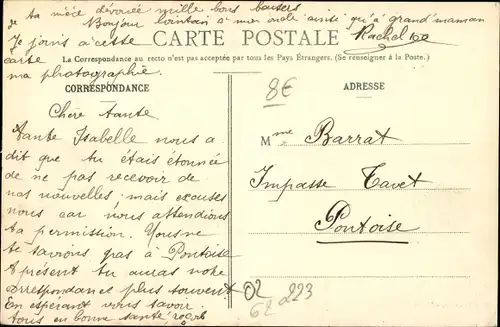 ta nièce dévouée mille bons baisers
Bonjour lointain mon oncle ainsi qu'à grand'maman
Je joins à cette
Rachel
CARTE POSTALE
carte
La Correspondance au recto n'est pas acceptée par tous les Pays Étrangers. (Se renseigner à la Poste.)
ma photographie.
CORRESPONDANCE
ADRESSE
8€
Chère tante
Tante Isabelle nous a
dit que tu étais étonnée
de ne pas recevoir de
nos nouvelles; mais excuses
nous car nous attendions
ta permission. Nous ne
te savions pas à Pontoise
A présent tu auras notre
correspondance plus souvent
En espérant vous savoir
tous en bonne santé
Mme Barrat
Impasse Tavet
Pontoise
02
62 223